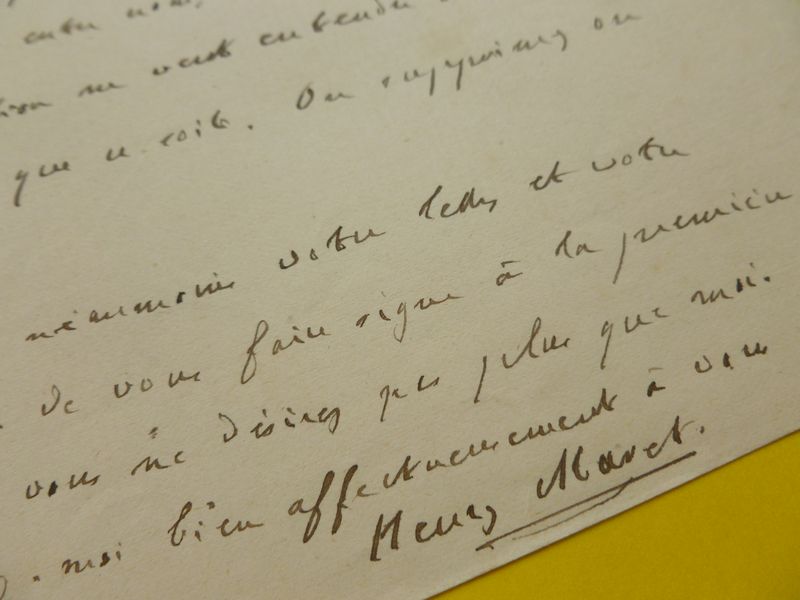 entre nous,
ne veut entendre
que ce soit. On supprimez on
néanmoins votre lettre et votre
de vous faire signe à la première
vous ne désirez pas plus que moi.
moi bien affectueusement à vous
Henry Maret.